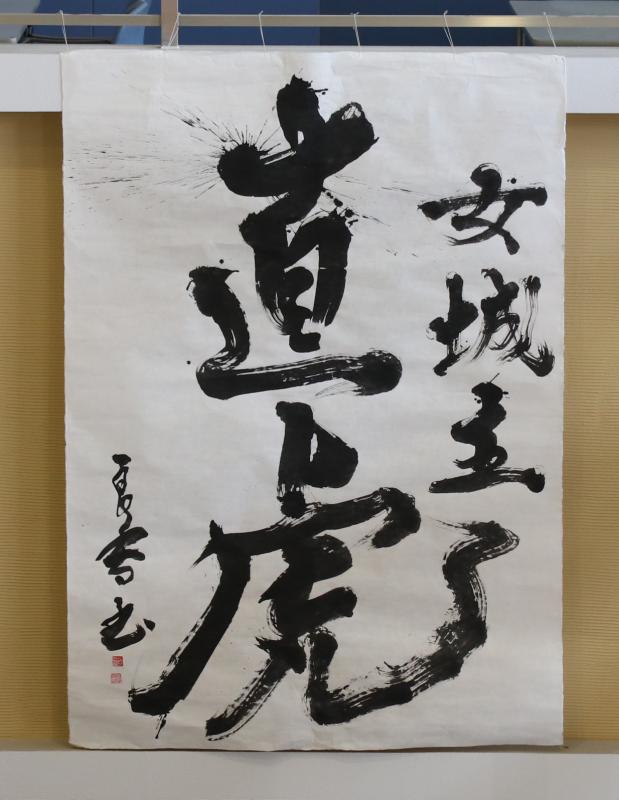 女城主
直虎
夏香書